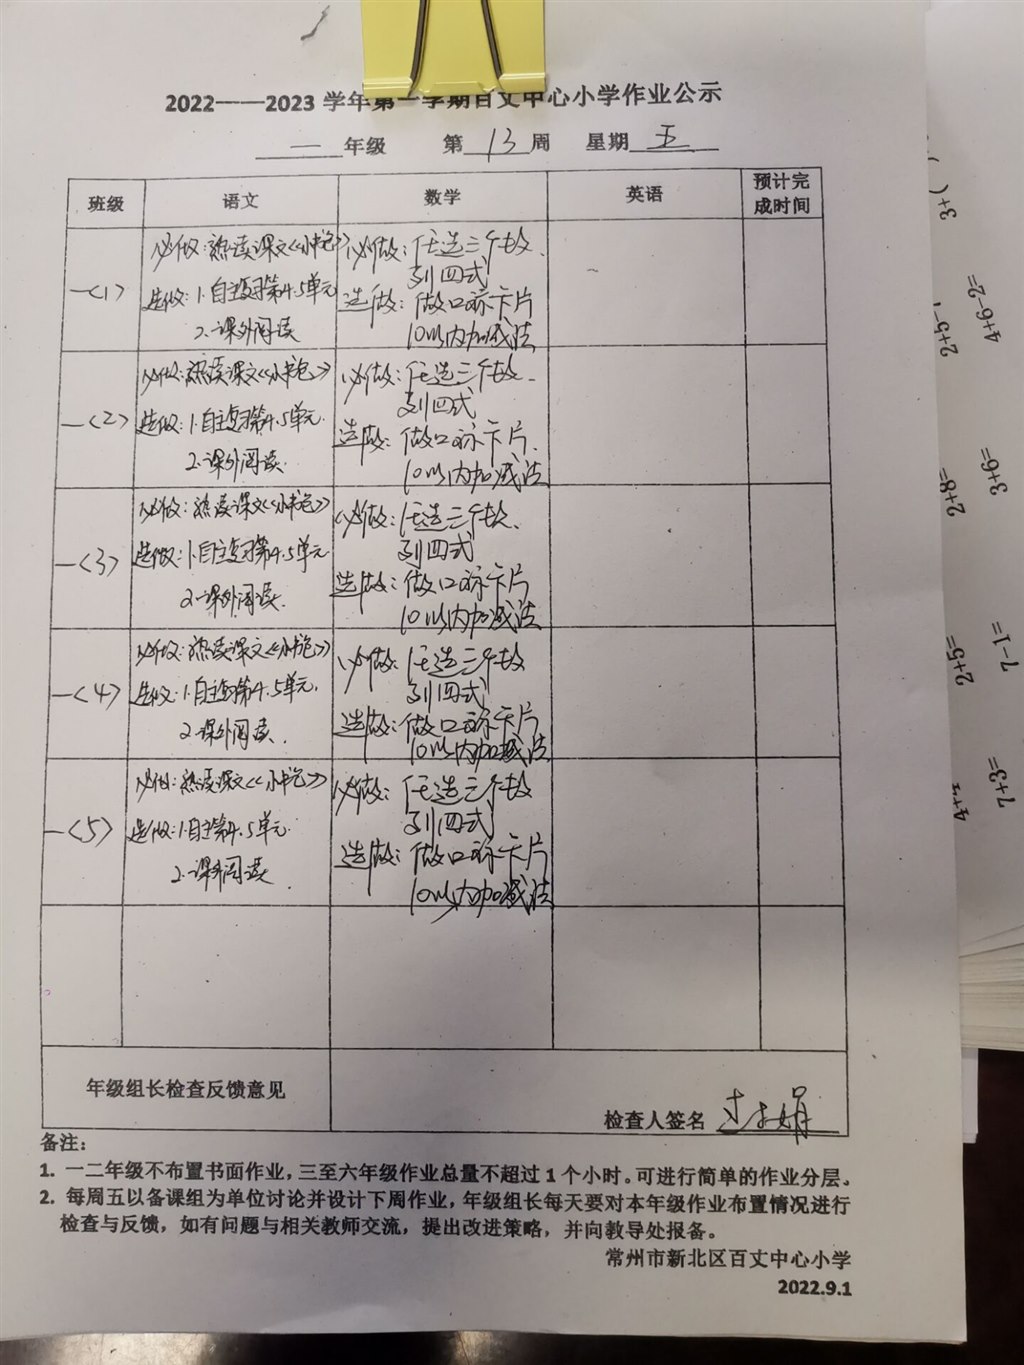 2022——2023 学年第一学期百丈中心小学作业公示
一 年级 第 13 周 星期 五
班级 语文 数学 英语 预计完成时间
一<1>
必做：熟读课文《小书包》
选做：1.自主复习第4.5单元
2.课外阅读
必做：任选三个数、
列四式
选做：做口算卡片
10以内加减法
一<2>
必做：熟读课文《小书包》
选做：1.自主复习第4.5单元.
2.课外阅读.
必做：任选三个数、
列四式
选做：做口算卡片、
10以内加减法
一<3>
必做：熟读课文《小书包》
选做：1.自主复习第4.5单元
2.课外阅读.
必做：任选三个数、
列四式
选做：做口算卡片
10以内加减法
一<4>
必做：熟读课文《小书包》
选做：1.自主复习第4.5单元.
2.课外阅读.
必做：任选三个数
列四式
选做：做口算卡片
10以内加减法
一<5>
必做：熟读课文《小书包》
选做：1.自主第4.5单元.
2.课外阅读
必做：任选三个数
列四式
选做：做口算卡片
10以内加减法
年级组长检查反馈意见
检查人签名
备注：
1. 一二年级不布置书面作业，三至六年级作业总量不超过 1 个小时。可进行简单的作业分层。
2. 每周五以备课组为单位讨论并设计下周作业，年级组长每天要对本年级作业布置情况进行
检查与反馈，如有问题与相关教师交流，提出改进策略，并向教导处报备。
常州市新北区百丈中心小学
2022.9.1
3+(
2+5-
4+6-2=
2+8=
3+6=
2+5=
7-1=
7+3=